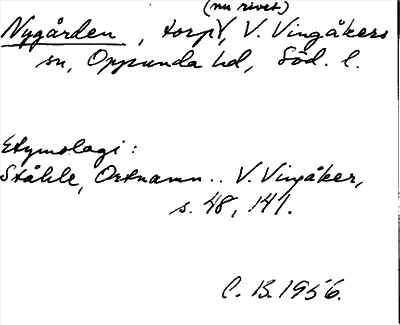 (nu rivet)
Nygården, torp, V. Vingåkers
sn, Oppunda hd, Söd. l.
Etymologi:
Ståhle, Ortnamn.. V. Vingåker,
s. 48, 141.
C. B. 1956.